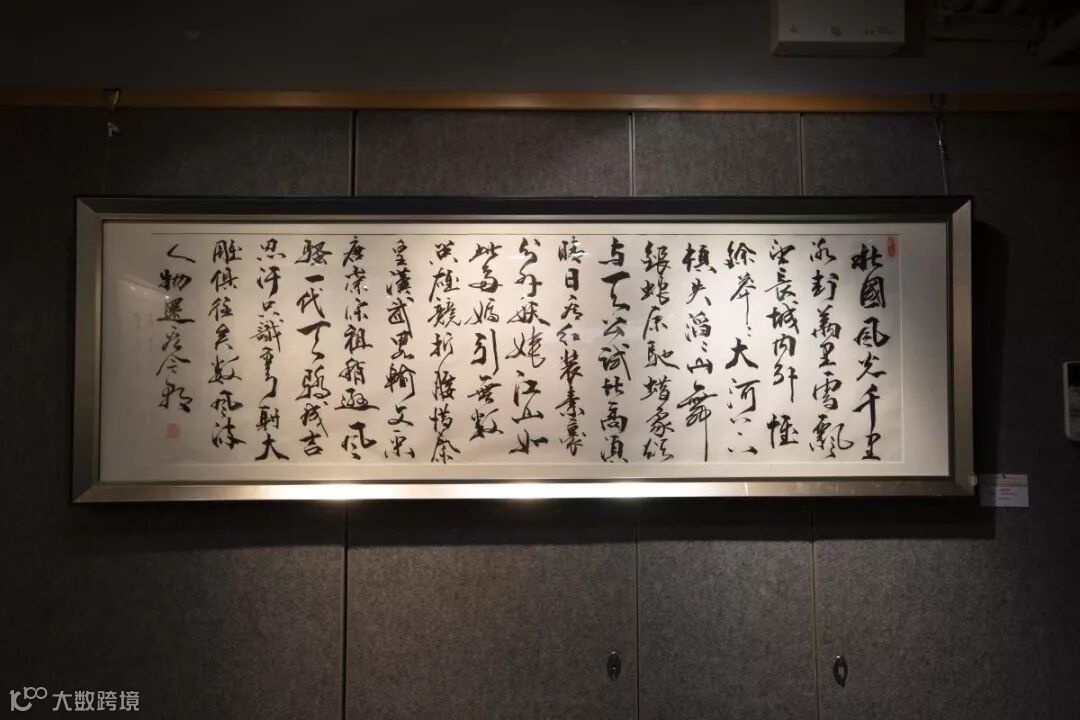 北國風光千里
冰封萬里雪飄
望長城内外惟
餘莽〻大河上下
頓失滔〻山舞
銀蛇原馳蜡象欲
与天公試比高須
晴日看红装素裹
分外妖嬈江山如
此多嬌引無數
英雄競折腰惜秦
皇漢武略輸文采
唐宗宋祖稍遜風
騷一代天驕成吉
思汗只識彎弓射大
雕俱往矣數風流
人物還看今朝
大数跨境